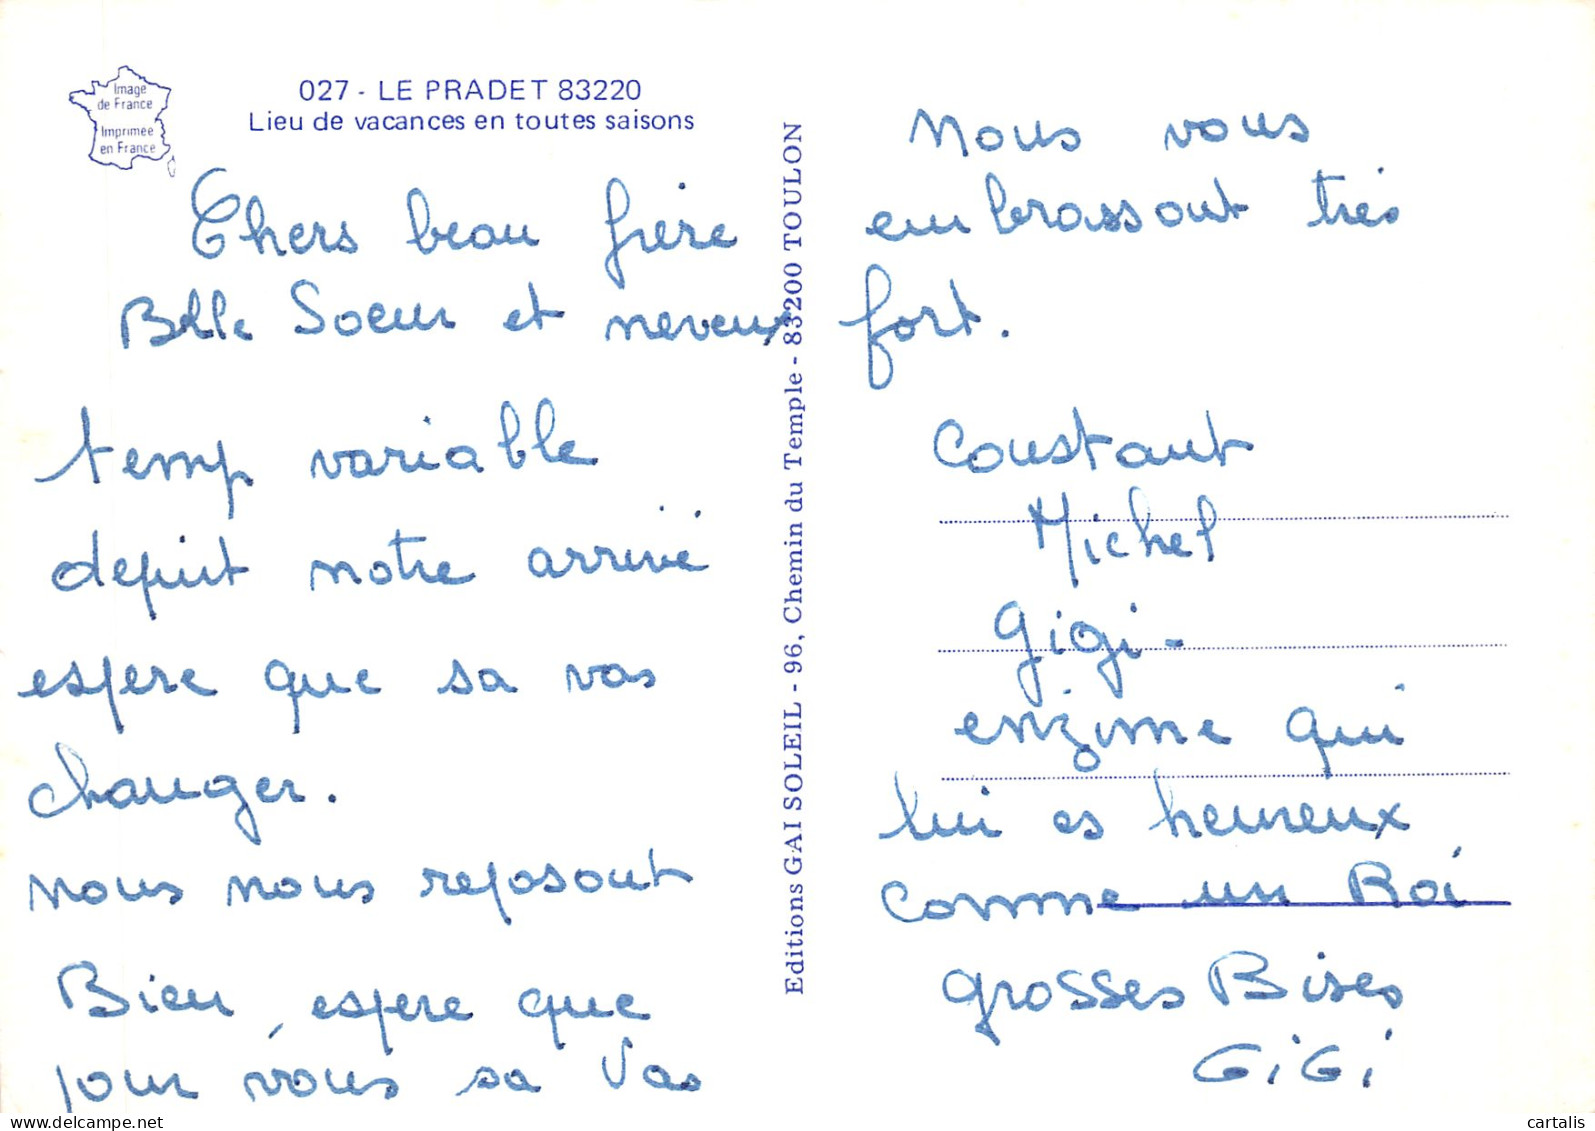 Image
de France
Imprimée
en France
027 - LE PRADET 83220
Lieu de vacances en toutes saisons
Chers beau frère
Belle Soeur et neveux
temp variable
depuit notre arrivé
espere que sa vas
changer.
nous nous reposont
Bien, espere que
pour vous sa Vas
Editions GAI SOLEIL - 96, Chemin du Temple - 83200 TOULON
Nous vous
embrassont très
fort.
Constant
Michel
Gigi -
enzime qui
lui es heureux
comme un Roi
grosses Bises
GiGi
cartalis
delcampe.net